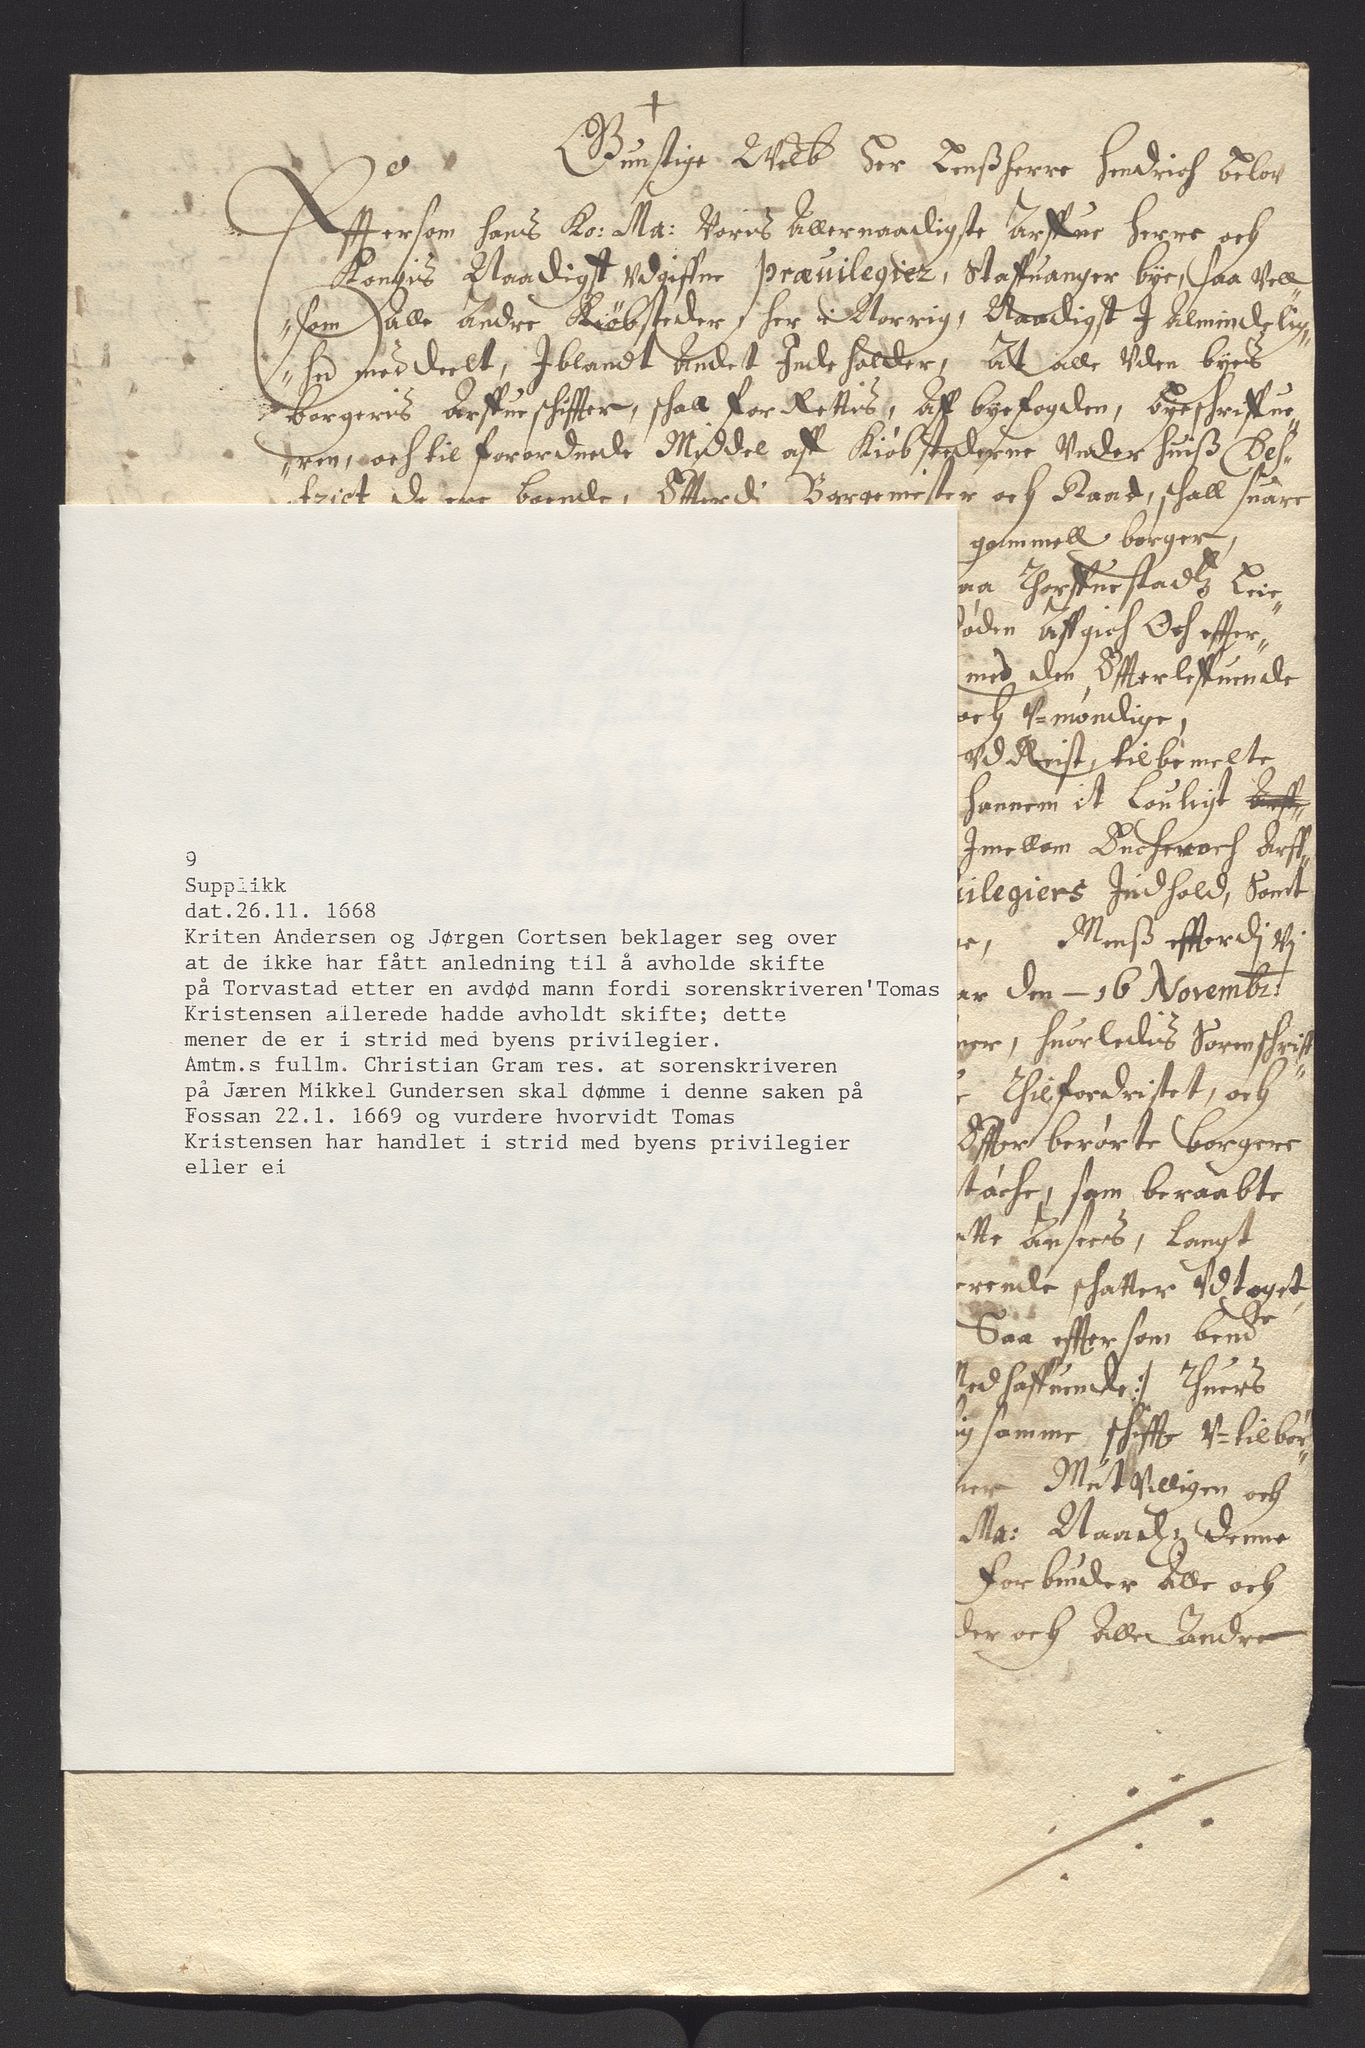 Gunstige Welb Her Lenßherre Hendrich Below
Effter som hans Ko: Ma: Voris Allernaadigste Arffue herre och
Kongis Naadigst Vdgiffne Præuilegier, Staffuanger bye, saa Vell
som alle Andre Kiøbsteder, her i Norrig, Naadigst J Almindelig„
„hed meddeelt, Jblandt Andet Jndeholder, At alle Vden byes
borgeris Arffueschiffter, schall forRettis, Aff byefogden, byeschriffue„
„ren, och til forordnede Middel aff Kiøbstederne Vnder huiß Des„
trict de ere boende, Effterdi Borgemister och Raad, schall suare
gammell borger,
Thorffuestadtz Leie„
døden Affgich Och effter„
med den Effterleffuende
och V=møndige,
VdReist, til bemelte
hannem it Louligt Arff„
Jmellom Enche och Arff„
uilegiers Jndhold, Samt
Menß effterdj Vj
den 16 Novembr:
huorledis Sorenschriff„
Thilfordristet, och
Effter berørte borgere
støche, som beraabte
Ansees, langt
erende schatter Vdtaget,
Saa effter som bemte
Medhaffuende:/ Thuers
samme schiffte V=tilbør„
Mutvilligen och
Ma: Naadtz denne
forbinder Alle och
der och Alle Andre
9
Supplikk
dat.26.11. 1668
Kriten Andersen og Jørgen Cortsen beklager seg over
at de ikke har fått anledning til å avholde skifte
på Torvastad etter en avdød mann fordi sorenskriveren'Tomas
Kristensen allerede hadde avholdt skifte; dette
mener de er i strid med byens privilegier.
Amtm.s fullm. Christian Gram res. at sorenskriveren
på Jæren Mikkel Gundersen skal dømme i denne saken på
Fossan 22.1. 1669 og vurdere hvorvidt Tomas
Kristensen har handlet i strid med byens privilegier
eller ei